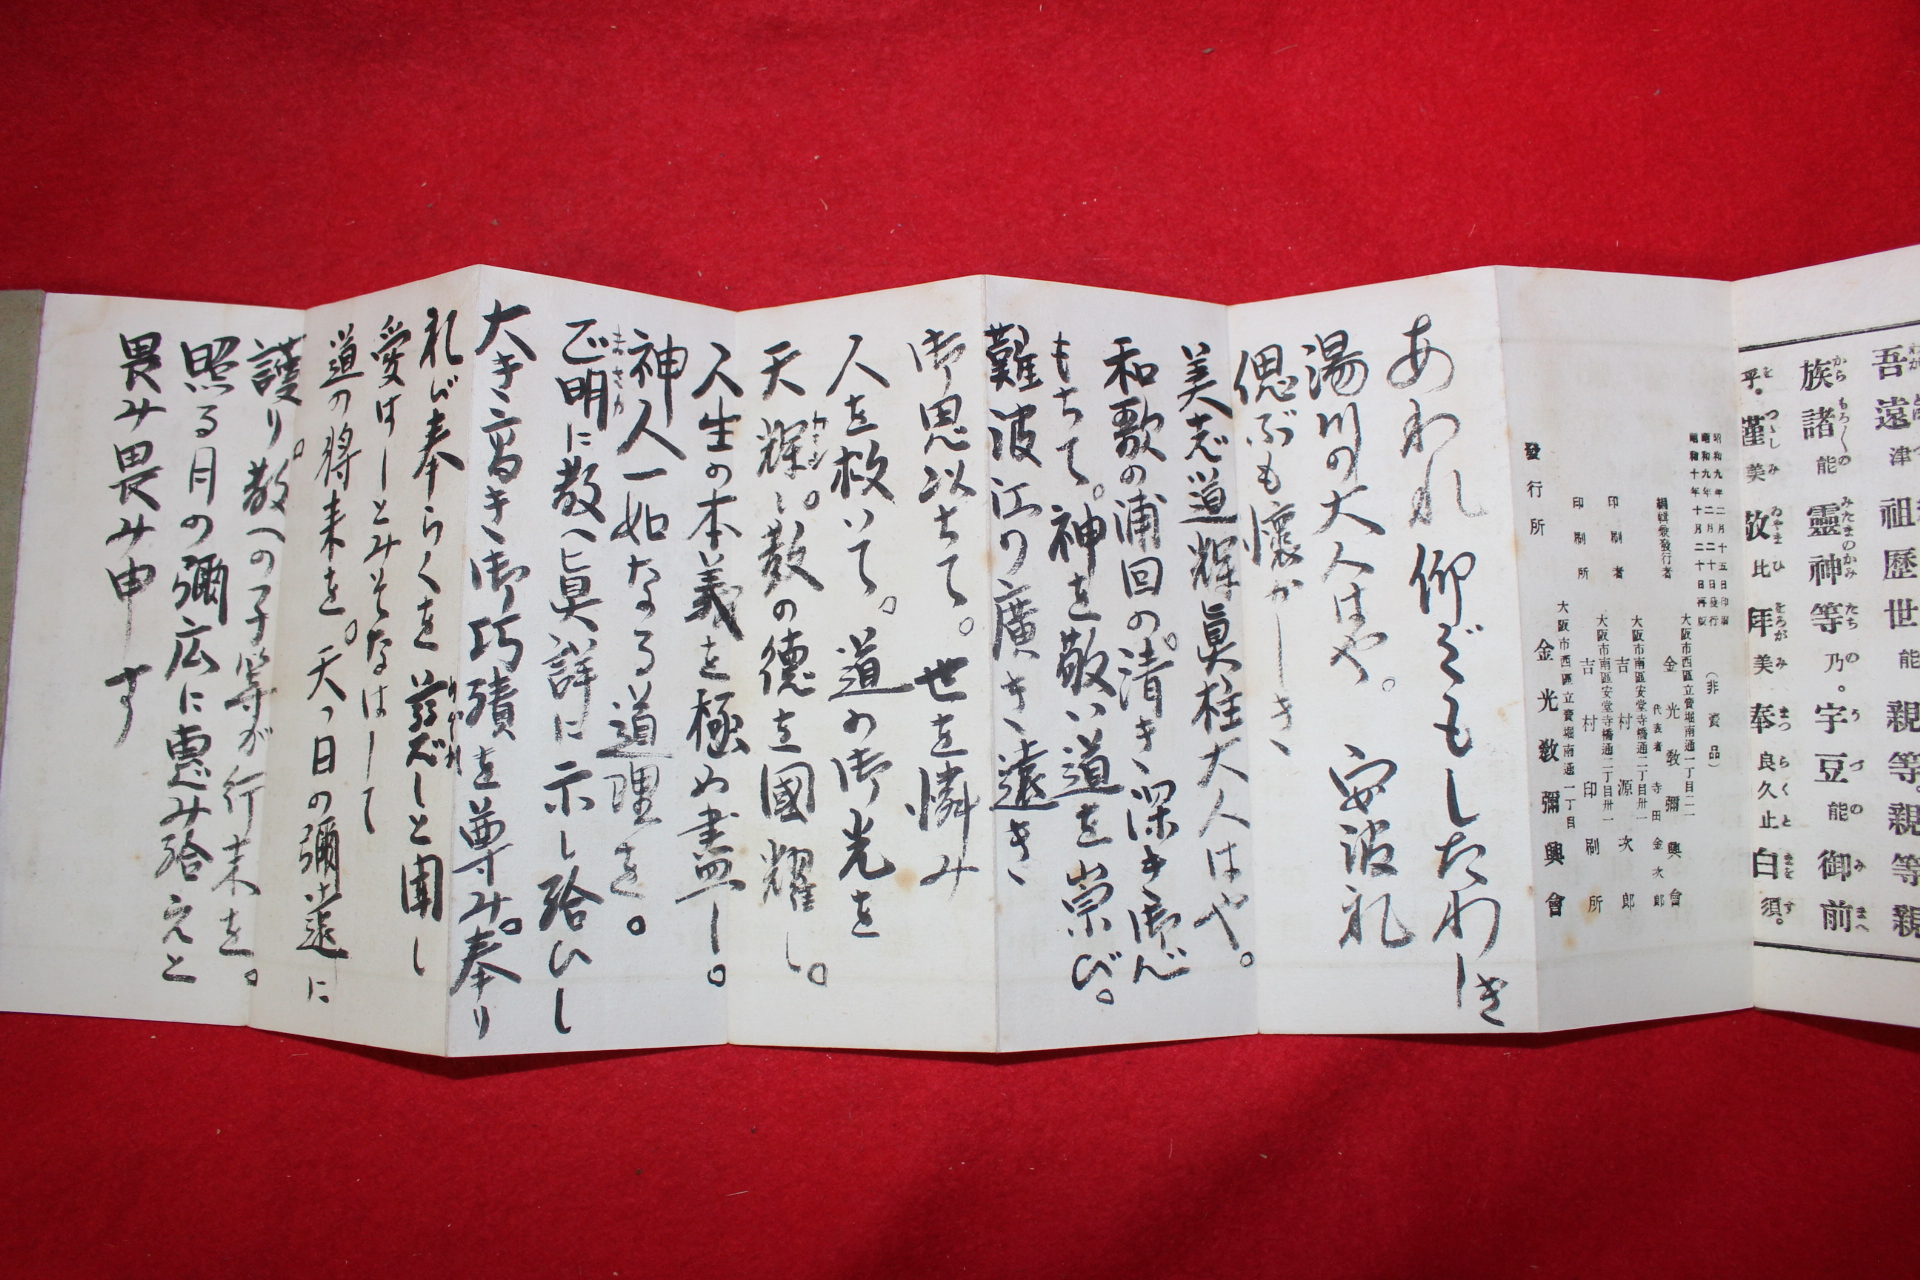 吾遠津祖歷世能親等。親等親
族諸能靈神等乃。宇豆能御前
乎。謹美敬比年美奉良久止白須。
昭和九年二月十五日印刷
昭和九年二月二十日發行
昭和十年十月二十日再版
(非賣品)
大阪市西區立賣堀南通一丁目二一
編輯兼發行者 金光敎彌興會
代表者 寺田金次郎
大阪市南區安堂寺橋通二丁目卅一
印刷者 吉村源次郎
大阪市南區安堂寺橋通二丁目卅一
印刷所 吉村印刷所
大阪市西區立賣堀南通一丁目
發行所 金光敎彌興會
あわれ仰ぞもしたわしき
湯川の大人はや。安波礼
偲ぶも懷かしき
美志道輝眞柱大人はや。
和歌の浦回の。清き深き御心
もちて。神を敬い道を崇び。
難波江の廣き遠き
御思以ちて。世を憐み
人を救いて。道の御光を
天輝し。敎の德を國耀し。
人生の本義を極め盡し。
神人一如なる道理を。
正明に敎へ眞詳に示し給ひし
大き高き御巧績を尊み。奉り
礼び奉らくを 
しと聞し
愛はしとみそなはして
道の將来を。天つ日の彌遠に
護り。敎への子等が行末を。
照る月の彌広に惠み給えと
畏み畏み申す